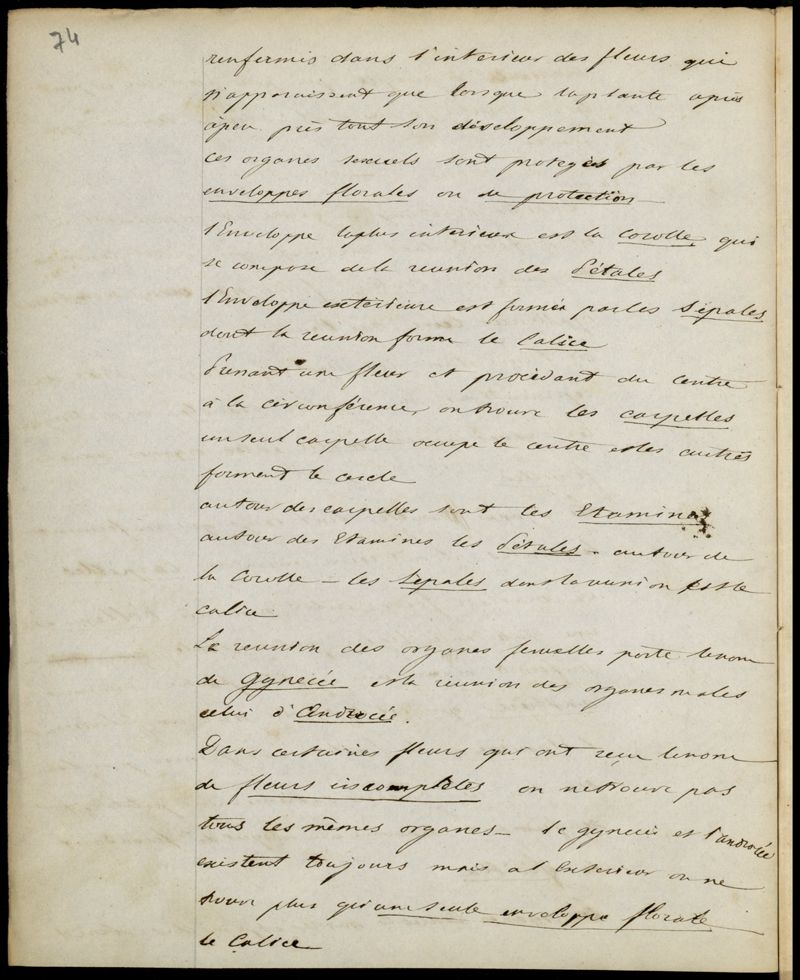 74
renfermis dans l'interieur des fleurs qui
n'apparaissent que lorsque la plante après
àpeu près tout son développement
ces organes sexuels sont protegés par les
enveloppes florales ou de protection
l'Enveloppe laplus interieure est la Corolle, qui
se compose dela reunion des Pétales
l'Enveloppe extérieure est formée parles Sépales
dont la reunion forme le Calice
Prenant une fleur et procédant du centre
à la circonférence, on trouve les carpelles
un seul carpelle occupe le centre et les autres
forment le cercle
autour des carpelles sont les Etamines
autour des Etamines les Pétales - autour de
la Corolle - les Sépales dont la reunion est le
calice
La reunion des organes femelles porte lenom
de Gynecée et la reunion des organes males
celui d'Androcée.
Dans certaines fleurs qui ont reçu lenom
de fleurs incomplètes on netrouve pas
tous les mêmes organes - le gynecée et l'androcée
existent toujours mais a l'exterieur on ne
trouve plus qu'une seule enveloppe florale
le Calice